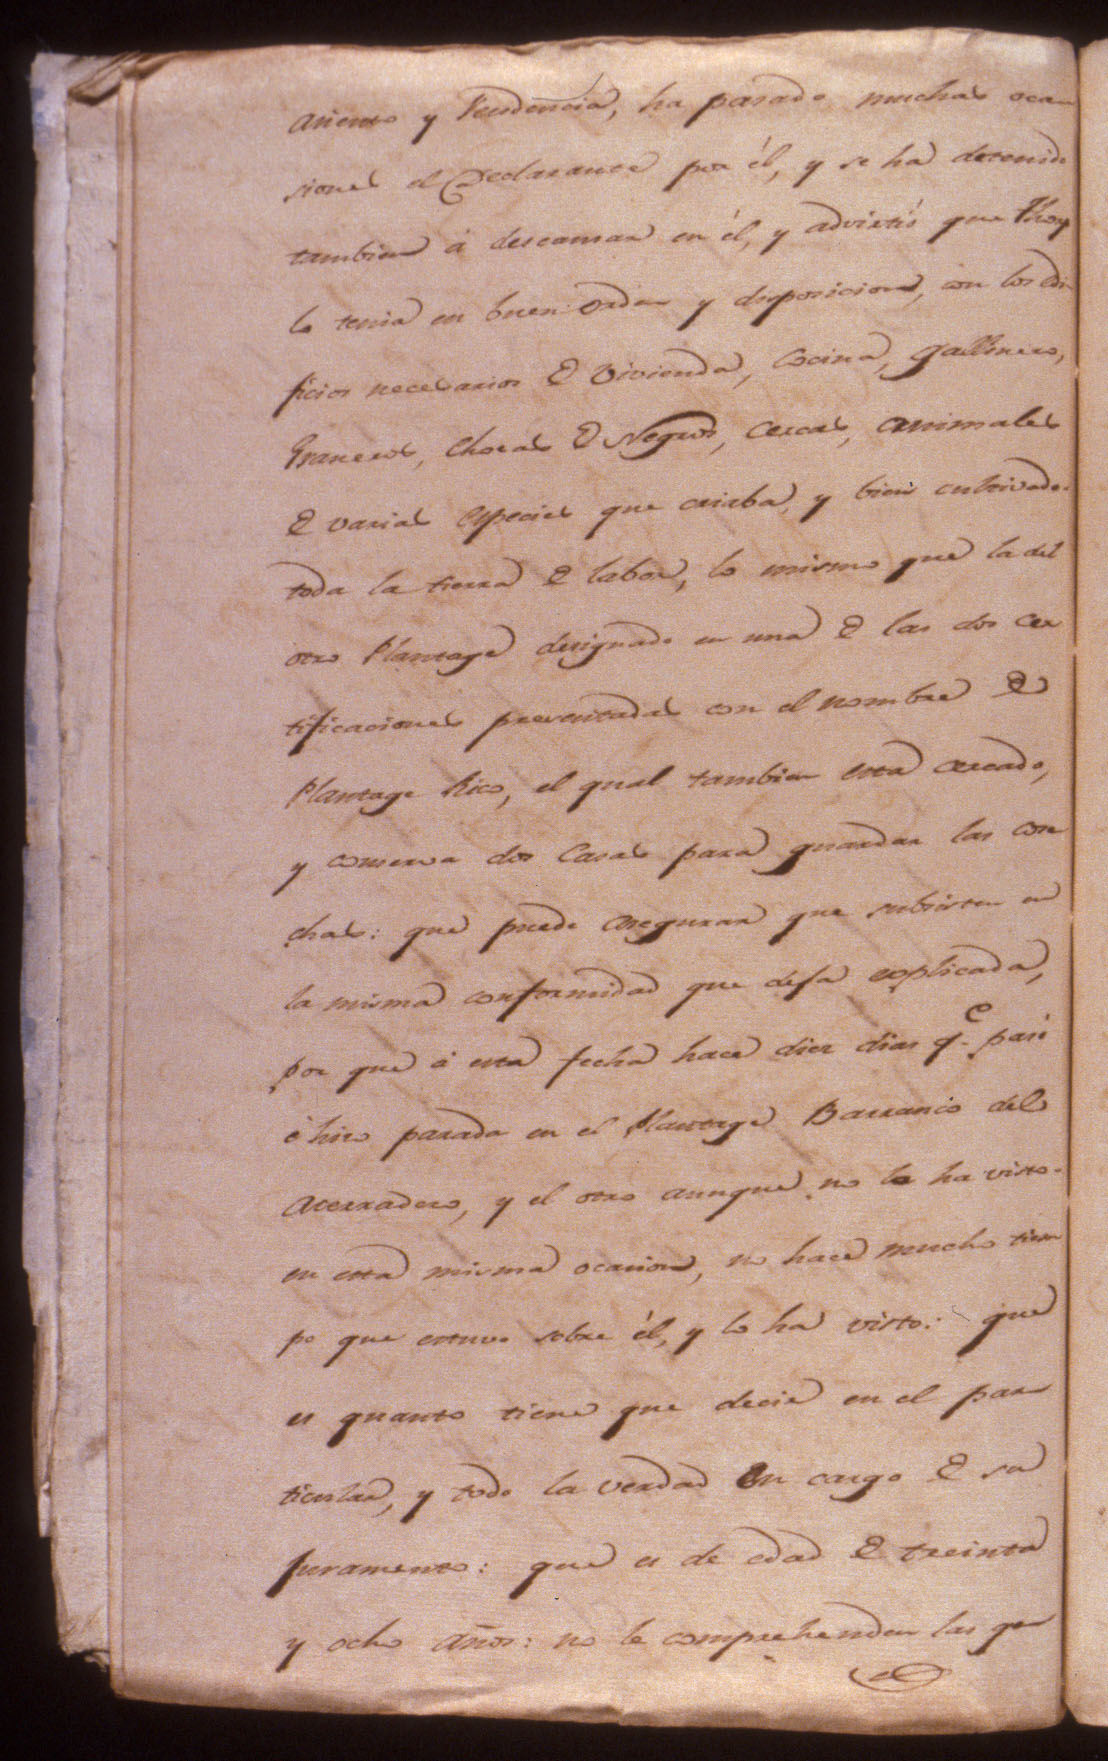 asiento y Residencia, ha pasado muchas oca-
siones el Declarante por él, y se ha detenido
tambien á descansar en él, y advirtió que
lo tenia en buen orden y disposicion, con los edi-
ficios necesarios de vivienda, cocina, gallinero,
Graneros, Chosas de Negros, cercas, animales
de varias especies que criaba, y bien cultivada
toda la tierra de labor, lo mismo que la del
otro Plantage designado en una de las dos cer
tificaciones presentadas con el nombre de
Plantage Rico, el qual tambien esta cercado,
y conserva dos Casas para guardar las cose
chas: que puede asegurar que subsisten en
la misma conformidad que desa explicada,
por que á esta fecha hace diez dias q.e pasó
é hizo parada en el Plantage Barranco del
Acerradero, y el otro aunque no lo ha visto
en esta misma ocasion, no hace mucho tiem
po que estuvo sobre él, y lo ha visto: que
es quanto tiene que decir en el par
ticular, y todo la verdad en cargo de su
juramento: que es de edad de treinta
y ocho años: no le comprehenden las ge